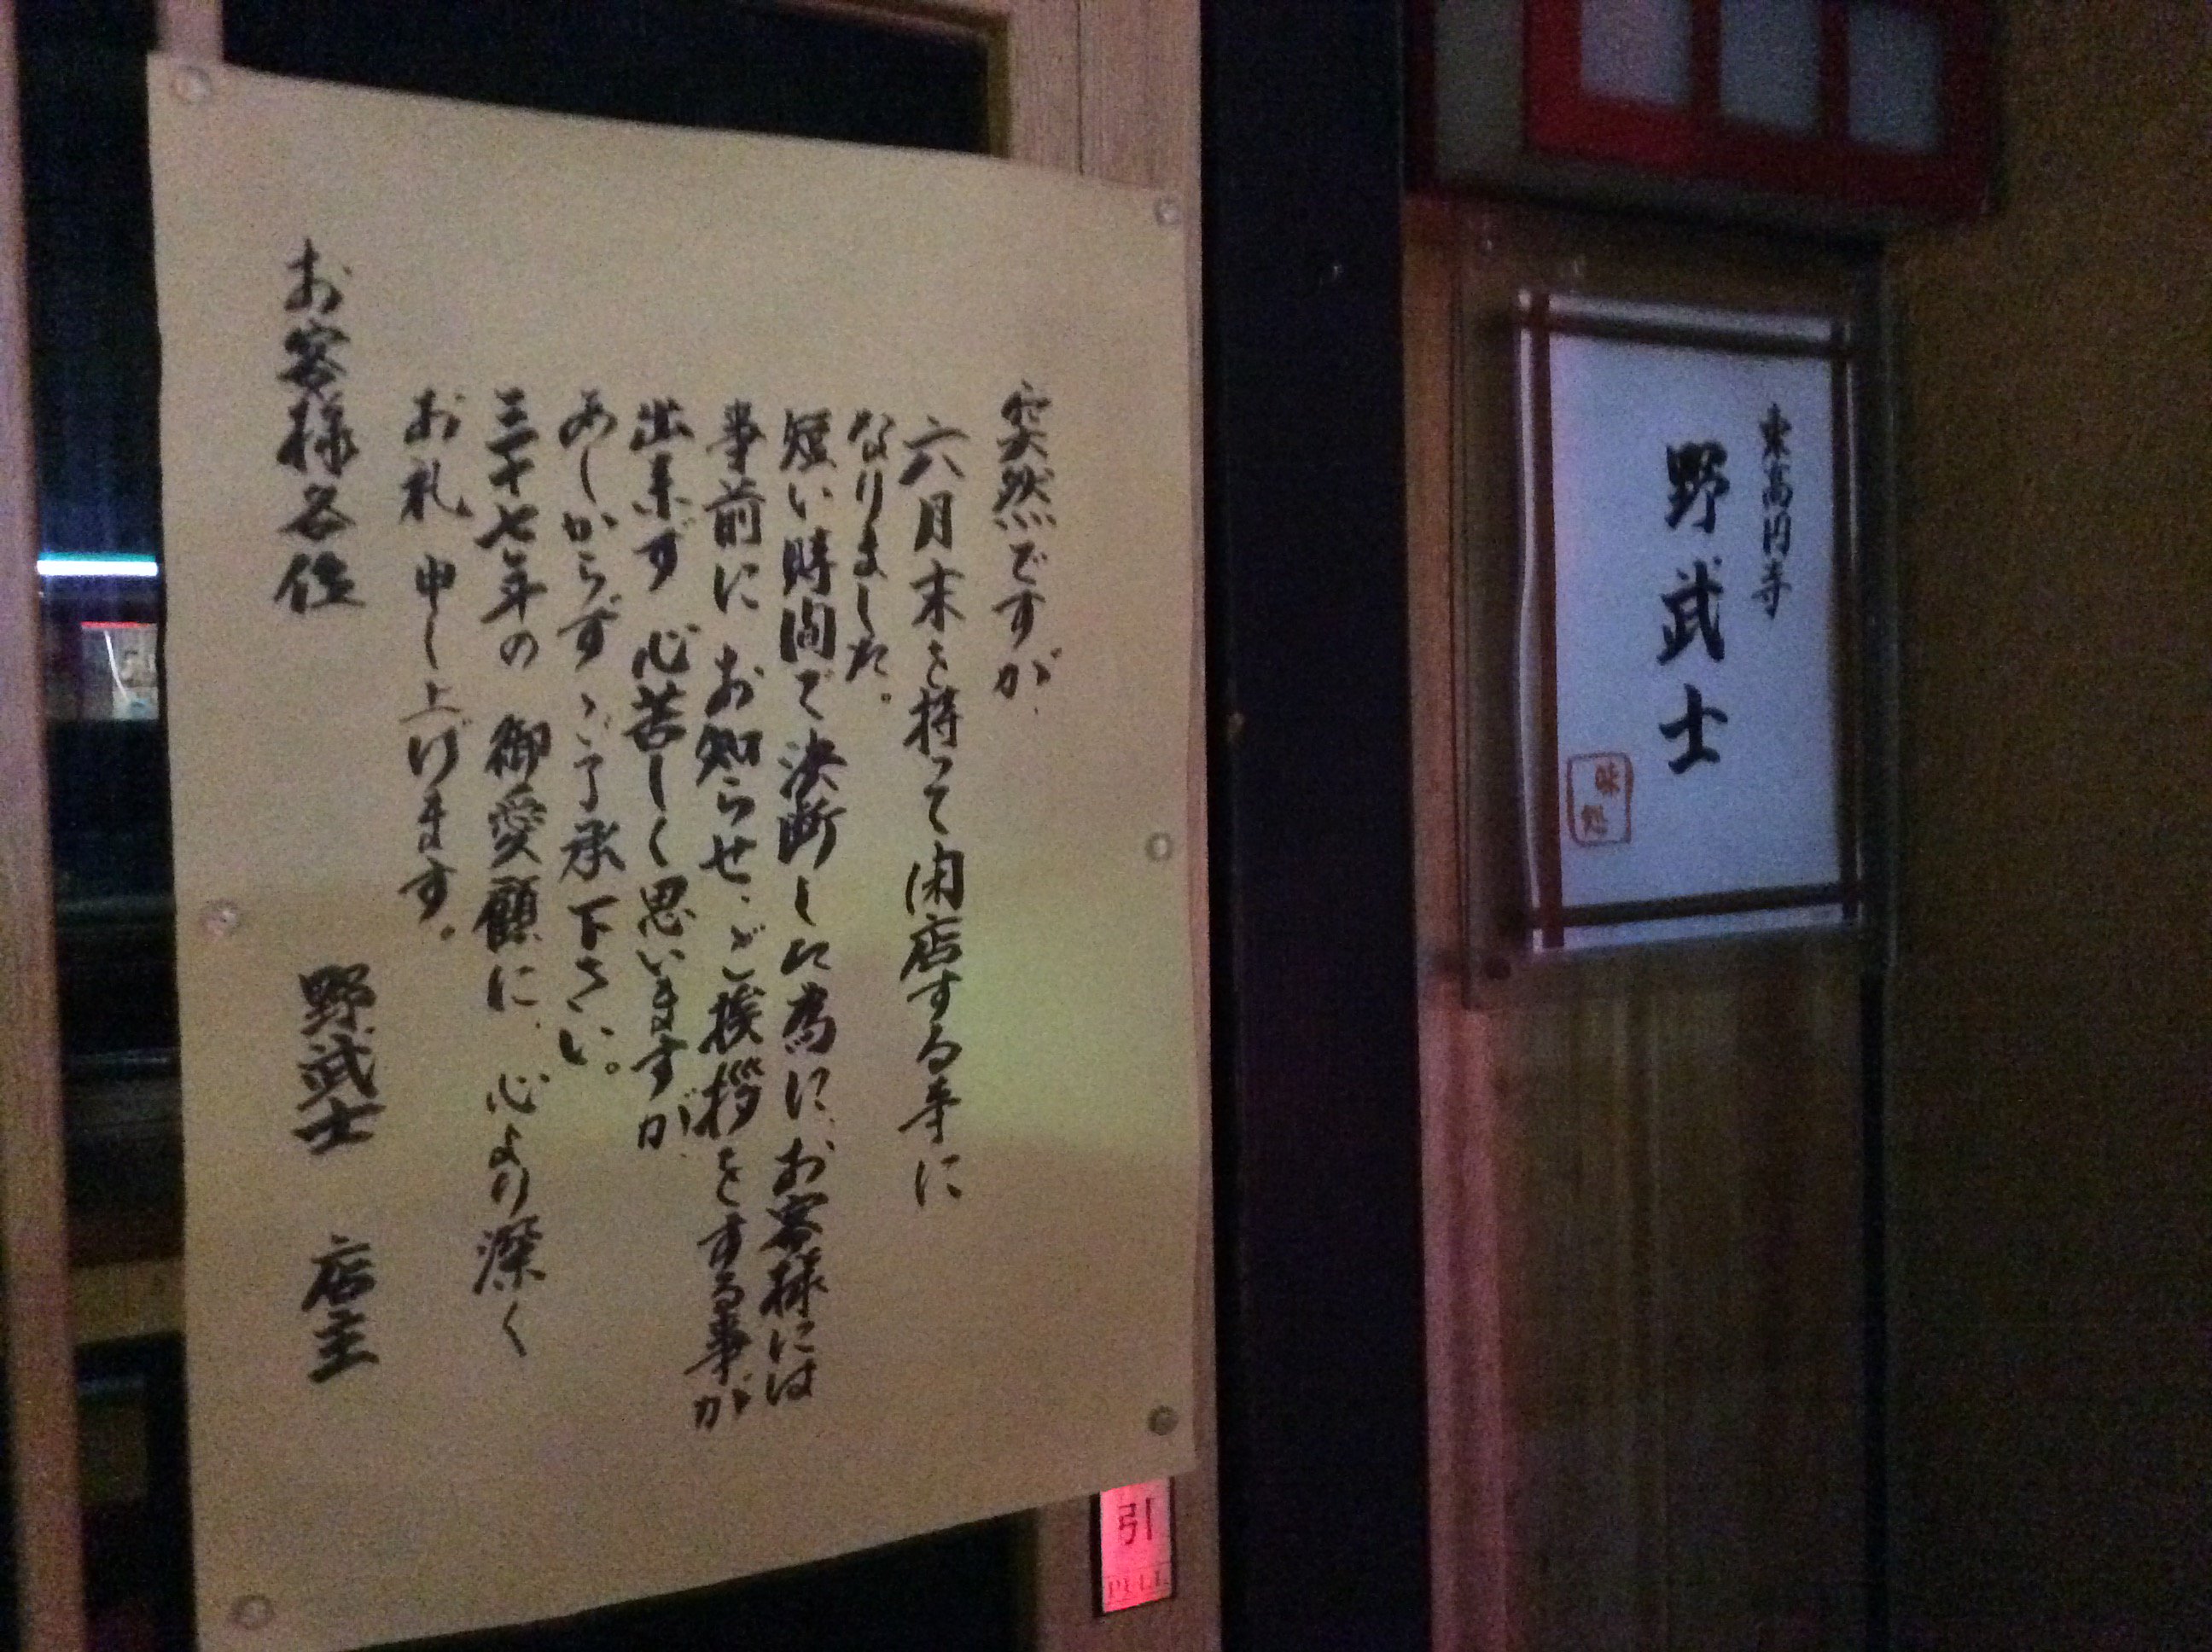 突然ですが、
六月末を持って閉店する事に
なりました。
短い時間で決断した為に、お客様には
事前にお知らせ、ご挨拶をする事が
出来ず 心苦しく思いますが、
あしからず、ご了承下さい。
三十七年の 御愛顧に、心より深く
お礼 申し上げます。
お客様各位
野武士 店主
東高円寺
野武士
味処
引
PULL